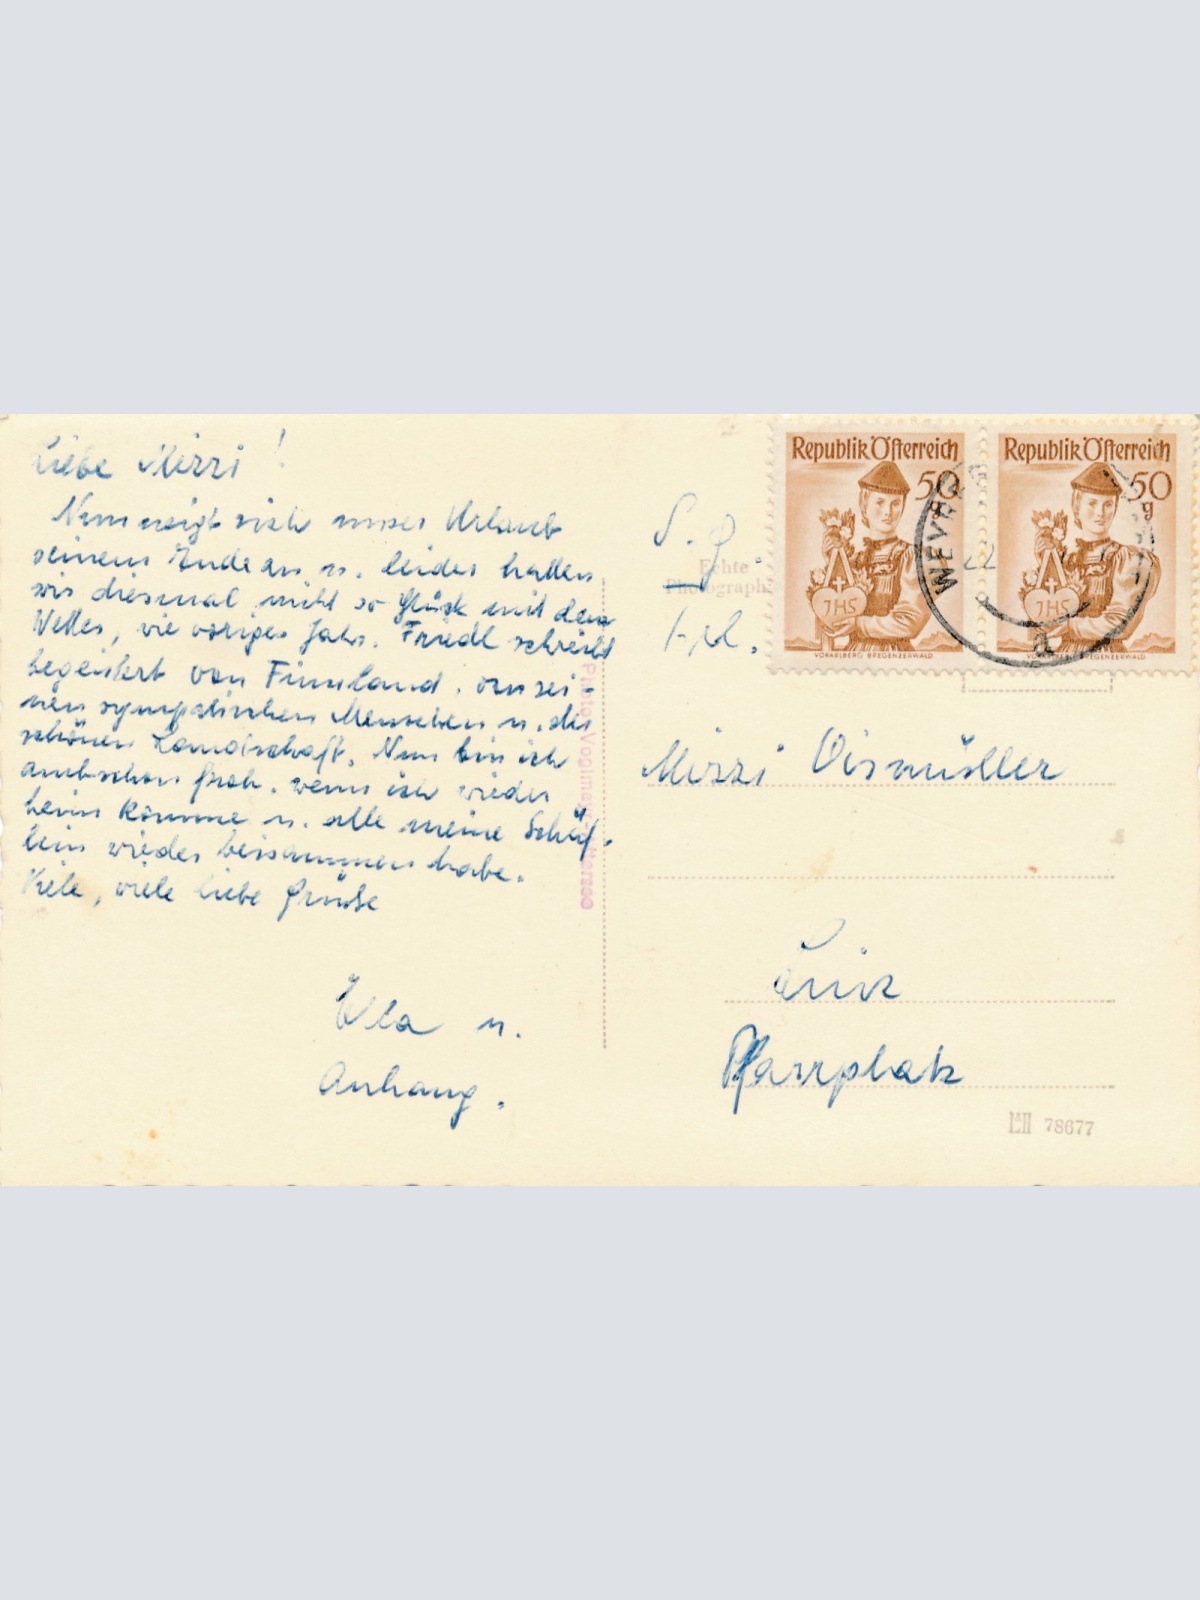 Liebe Mizzi!
Nun neigt sich unser Urlaub
seinem Ende zu u. leider hatten
wir diesmal nicht so Glück mit dem
Wetter, wie voriges Jahr. Friedl schreibt
begeistert von Finnland, von sei-
nen sympatischen Menschen u. der
schönen Landschaft. Nun bin ich
auch schon froh, wenn ich wieder
heim komme u. alle meine Schäf-
lein wieder beisammen habe.
Viele, viele liebe Grüße
Ella u.
Anhang.
Photo Voglmayr
S. g.
Echte
Photographie
Frl.
Republik Österreich
50
JHS
VORARLBERG BREGENZERWALD
Republik Österreich
50
g
JHS
BREGENZERWALD
WEYR
22
Mizzi Vismüller
Linz
Pfarrplatz
78677